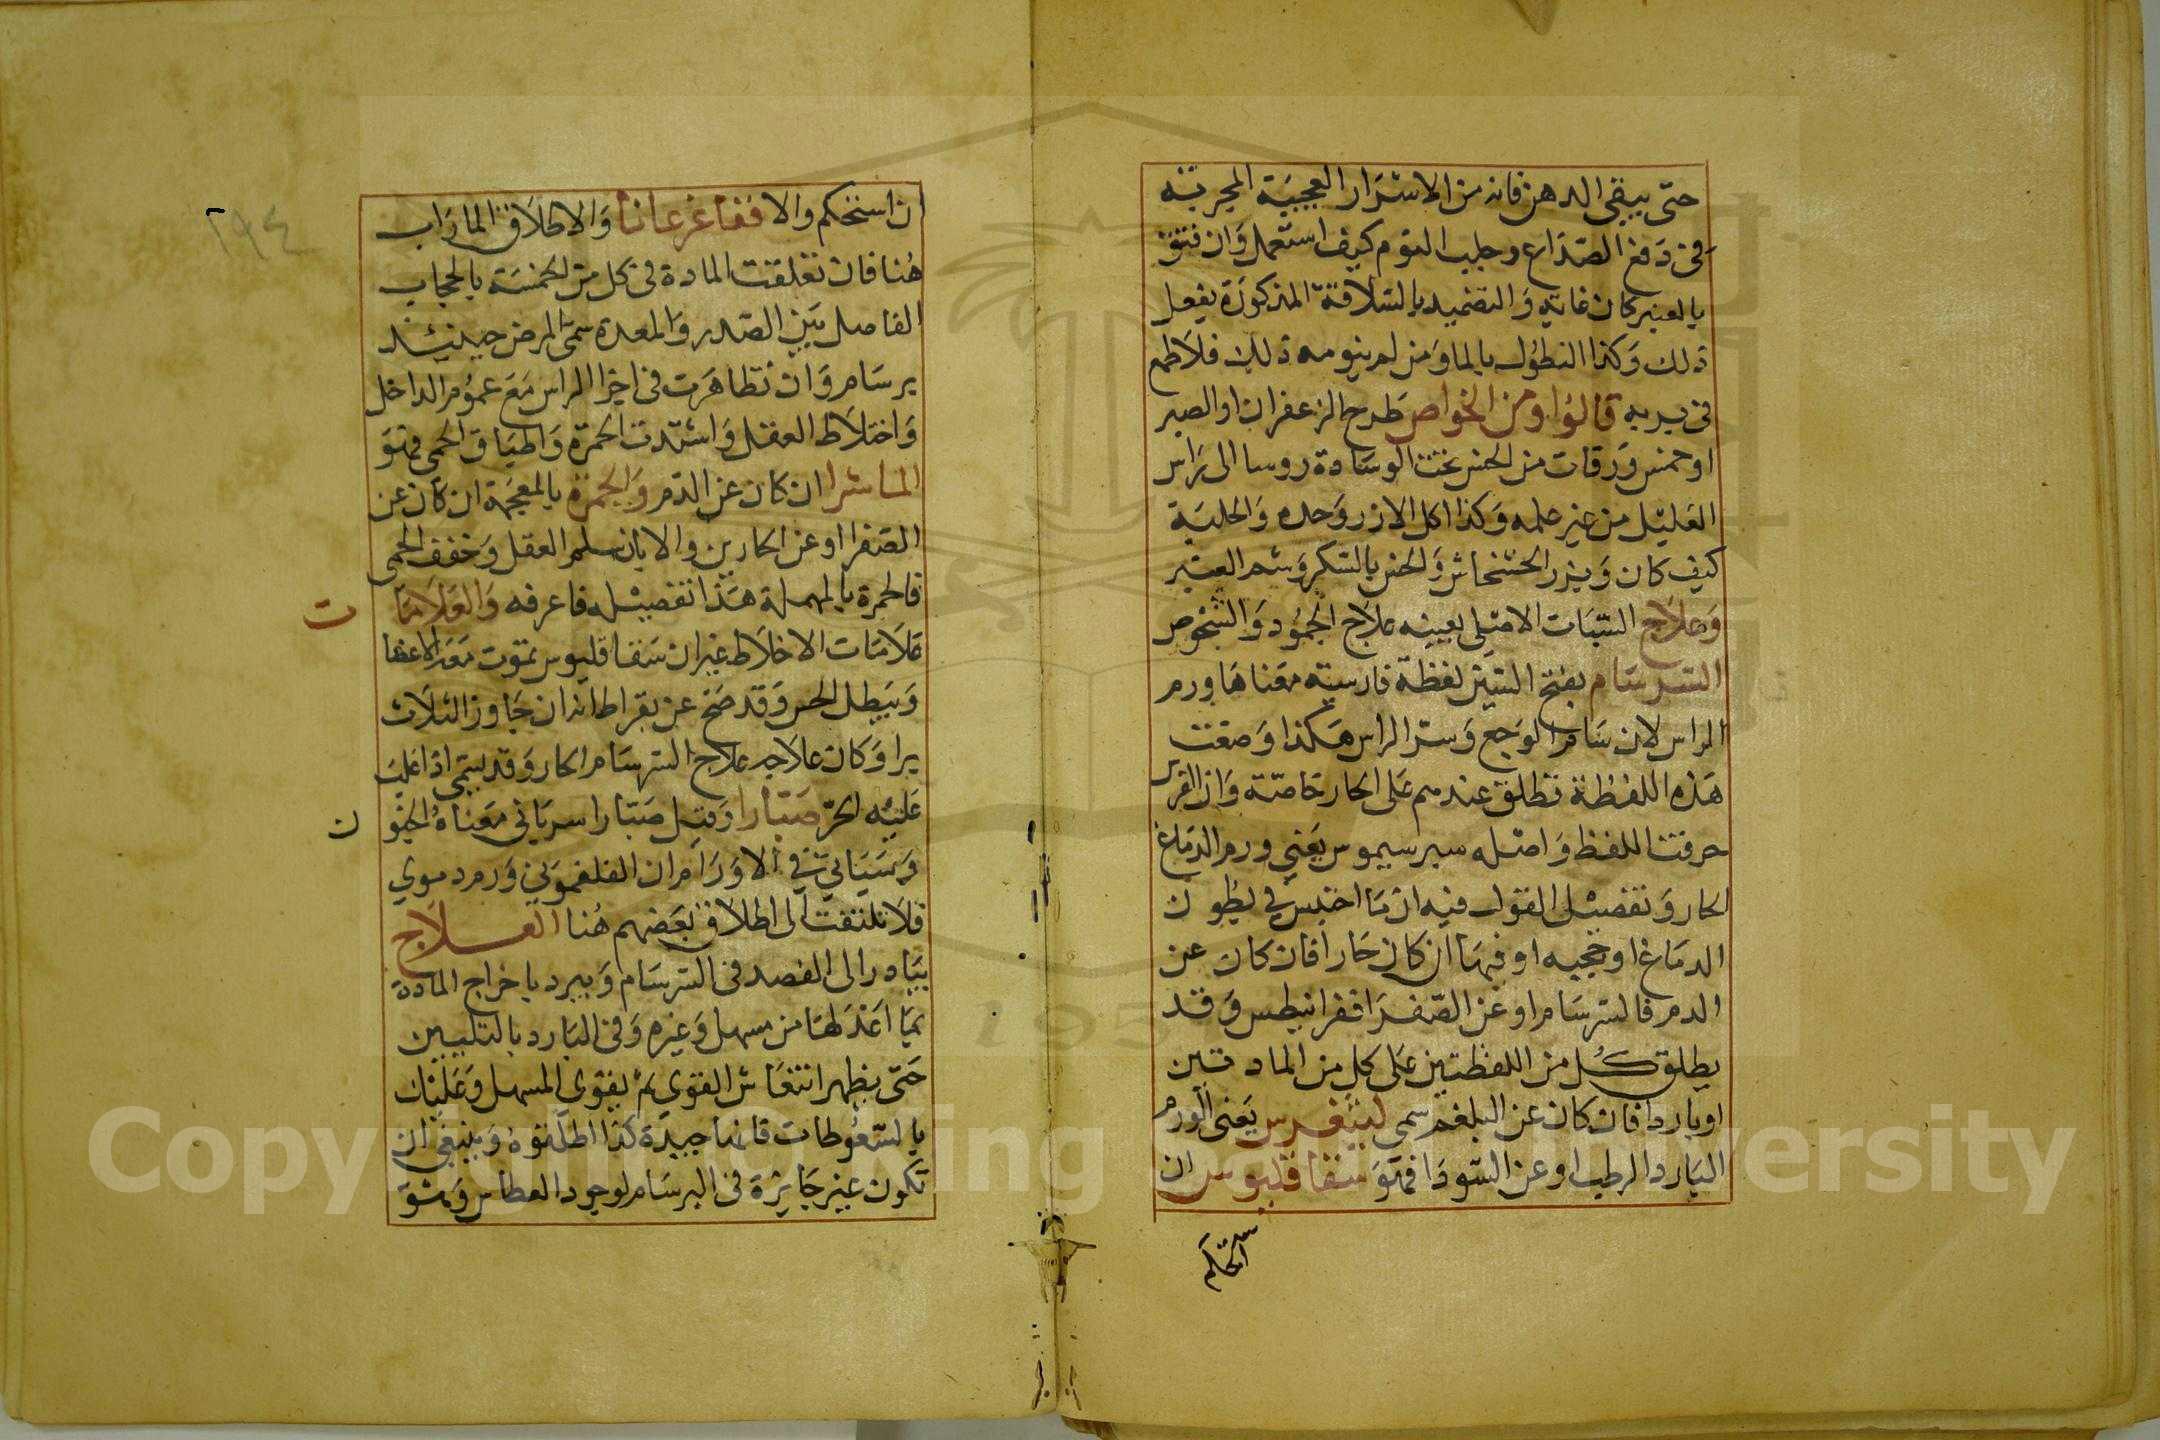 حتى يبقى الدهن فانه من الاسرار العجيبة المجربة
في دفع الصداع وجلب النوم كيف استعمل وان فتق
بالعنبر كان غاية والتضميد بالسلاقة المذكورة يفعل
ذلك وكذا النطول بالماء ومن لم ينومه ذلك فلا طمع
في بريه قالوا ومن الخواص طرح الزعفران او الصبر
او خمس ورقات من الخس تحت الوسادة روسا الى راس
العليل من غير علمه وكذا اكل الارز وحده والحلبة
كيف كان وبزر الخشخاش والخس بالسكر وشم العنبر
وعلاج السبات الاصلى بعينه علاج الجمود والشخوص
السرسام بفتح السين لفظة فارسية معناها ورم
الراس لان سام الوجع وسر الراس هكذا وضعت
هذه اللفظة فتطلق عندهم على الحار خاصة وان الفرس
حرفت اللفظ واصله سيرسيموس يعني ورم الدماغ
الحار وتفصيل القول فيه ان ما احتبس في بطون
الدماغ او حجبه او فيهما ان كان حارا فان كان عن
الدم فالسرسام او عن الصفرا فقرانيطس وقد
يطلق كل من اللفظتين على كل من المادتين
او باردا فان كان عن البلغم سمي ليثغرس يعني الورم
البارد الرطب او عن السودا فهو سقاقليوس ان
استحكم
٢٩٤
ن استحكم والا فغاغرعانا والاطلاق الماراب
هنا فان تعلقت المادة في كل من الخمسة بالحجاب
الفاصل بين الصدر والمعدة سمي المرض حينئذ
برسام وان تظاهرت في اجزا الراس مع عموم الداخل
واختلاط العقل واشتدت الحمرة واطباق الحمى فهو
الماشرا ان كان عن الدم والجمرة بالمعجمة ان كان عن
الصفرا او عن الحارين والا بان سلم العقل وخفف الحمى
فالحمرة بالمهملة هذا تفصيله فاعرفه والعلامات
علامات الاخلاط غير ان سقاقليوس تموت معه الاعضا
ويبطل الحس وقد صح عن بقراط انه ان جاوز الثلاث
برا وكان علاجه علاج السرسام الحار وقد يسمى اذا غلب
عليه الحر صبارا وقيل صبارا سرياني معناه الجنو
ن
وسياتي في الاورام ان الفلغموني ورم دموي
فلا تلتفت الى اطلاق بعضهم هنا العلاج
يبادر الى الفصد في السرسام ويبرد باخراج المادة
بما اعد لها من مسهل وغيره وفي البارد بالتليين
حتى يظهر انتعاش القوي ثم يقوي المسهل وعليك
بالسعوطات فانها جيدة كذا اطلقوه وينبغي ان
تكون غير جايزة في البرسام لوجود العطاس وهو